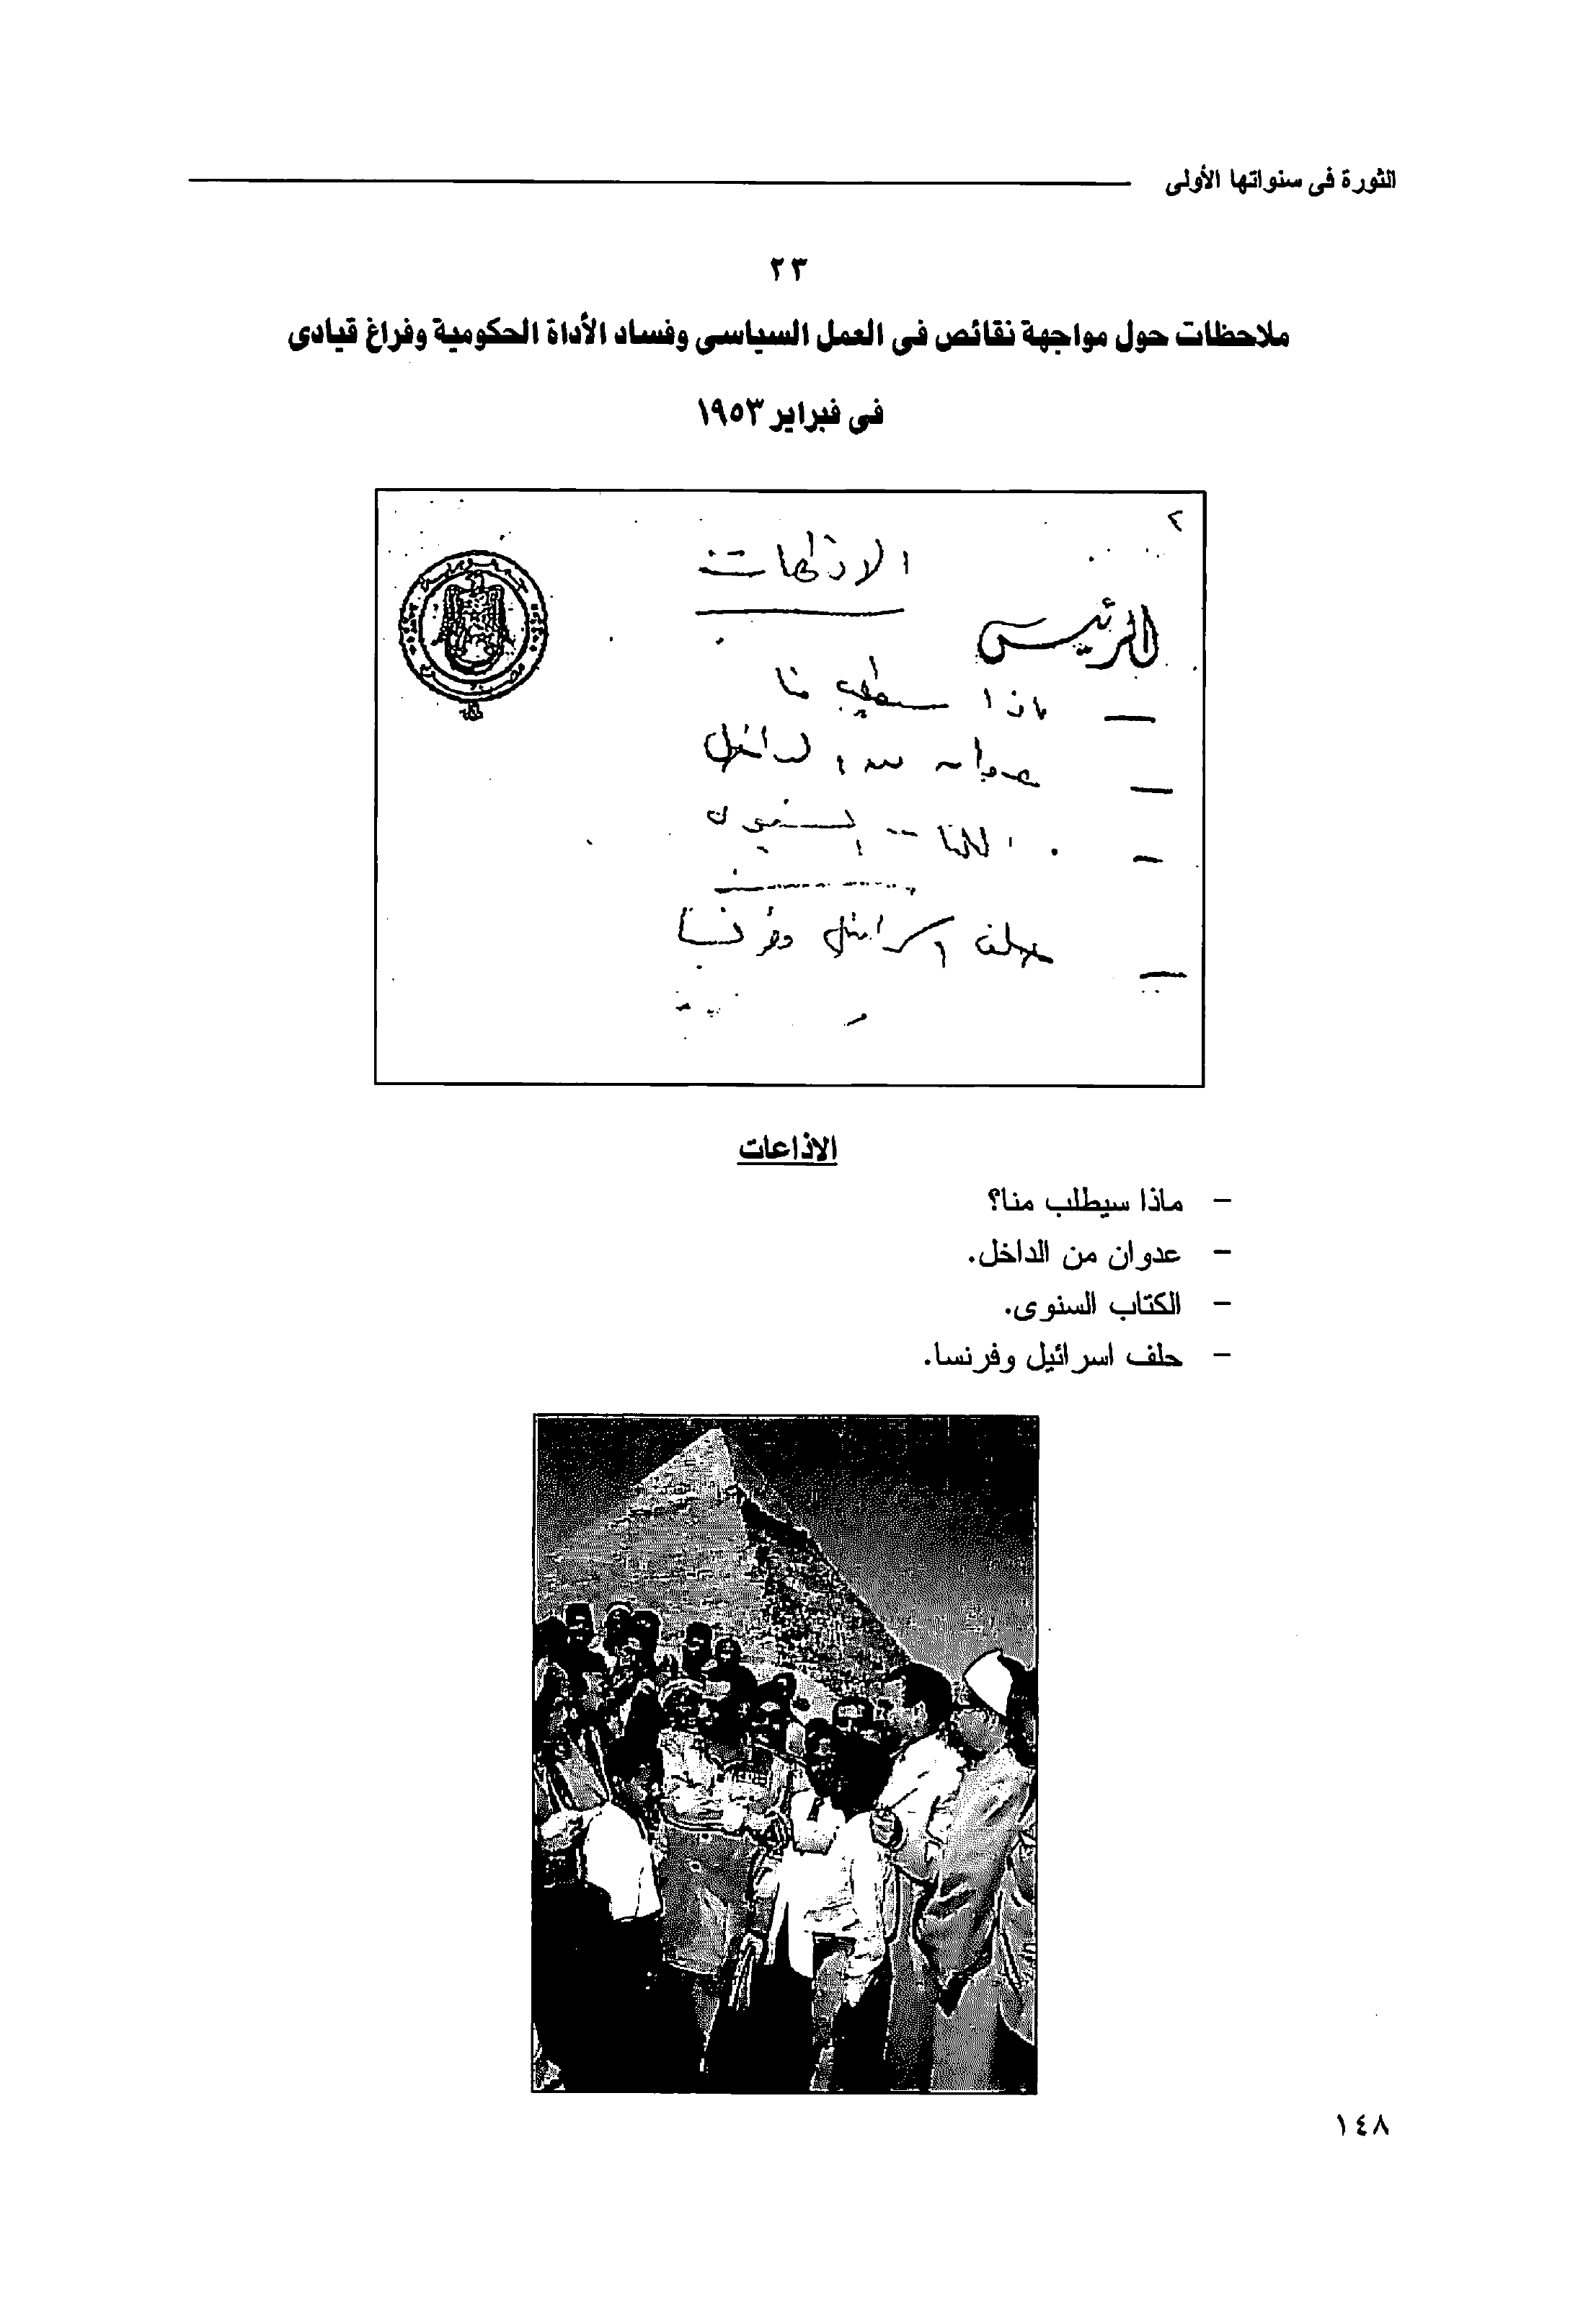 الثورة فى سنواتها الأولى
٢٣
ملاحظات حول مواجهة نقائص فى العمل السياسى وفساد الأداة الحكومية وفراغ قيادى
فى فبراير ١٩٥٣
٢
الاذاعات
الرئيس
— ماذا سيطلب منا
— عدوان من الداخل
— الكتاب السنوى
— حلف اسرائيل وفرنسا
الاذاعات
- ماذا سيطلب منا؟
- عدوان من الداخل.
- الكتاب السنوى.
- حلف اسرائيل وفرنسا.
١٤٨